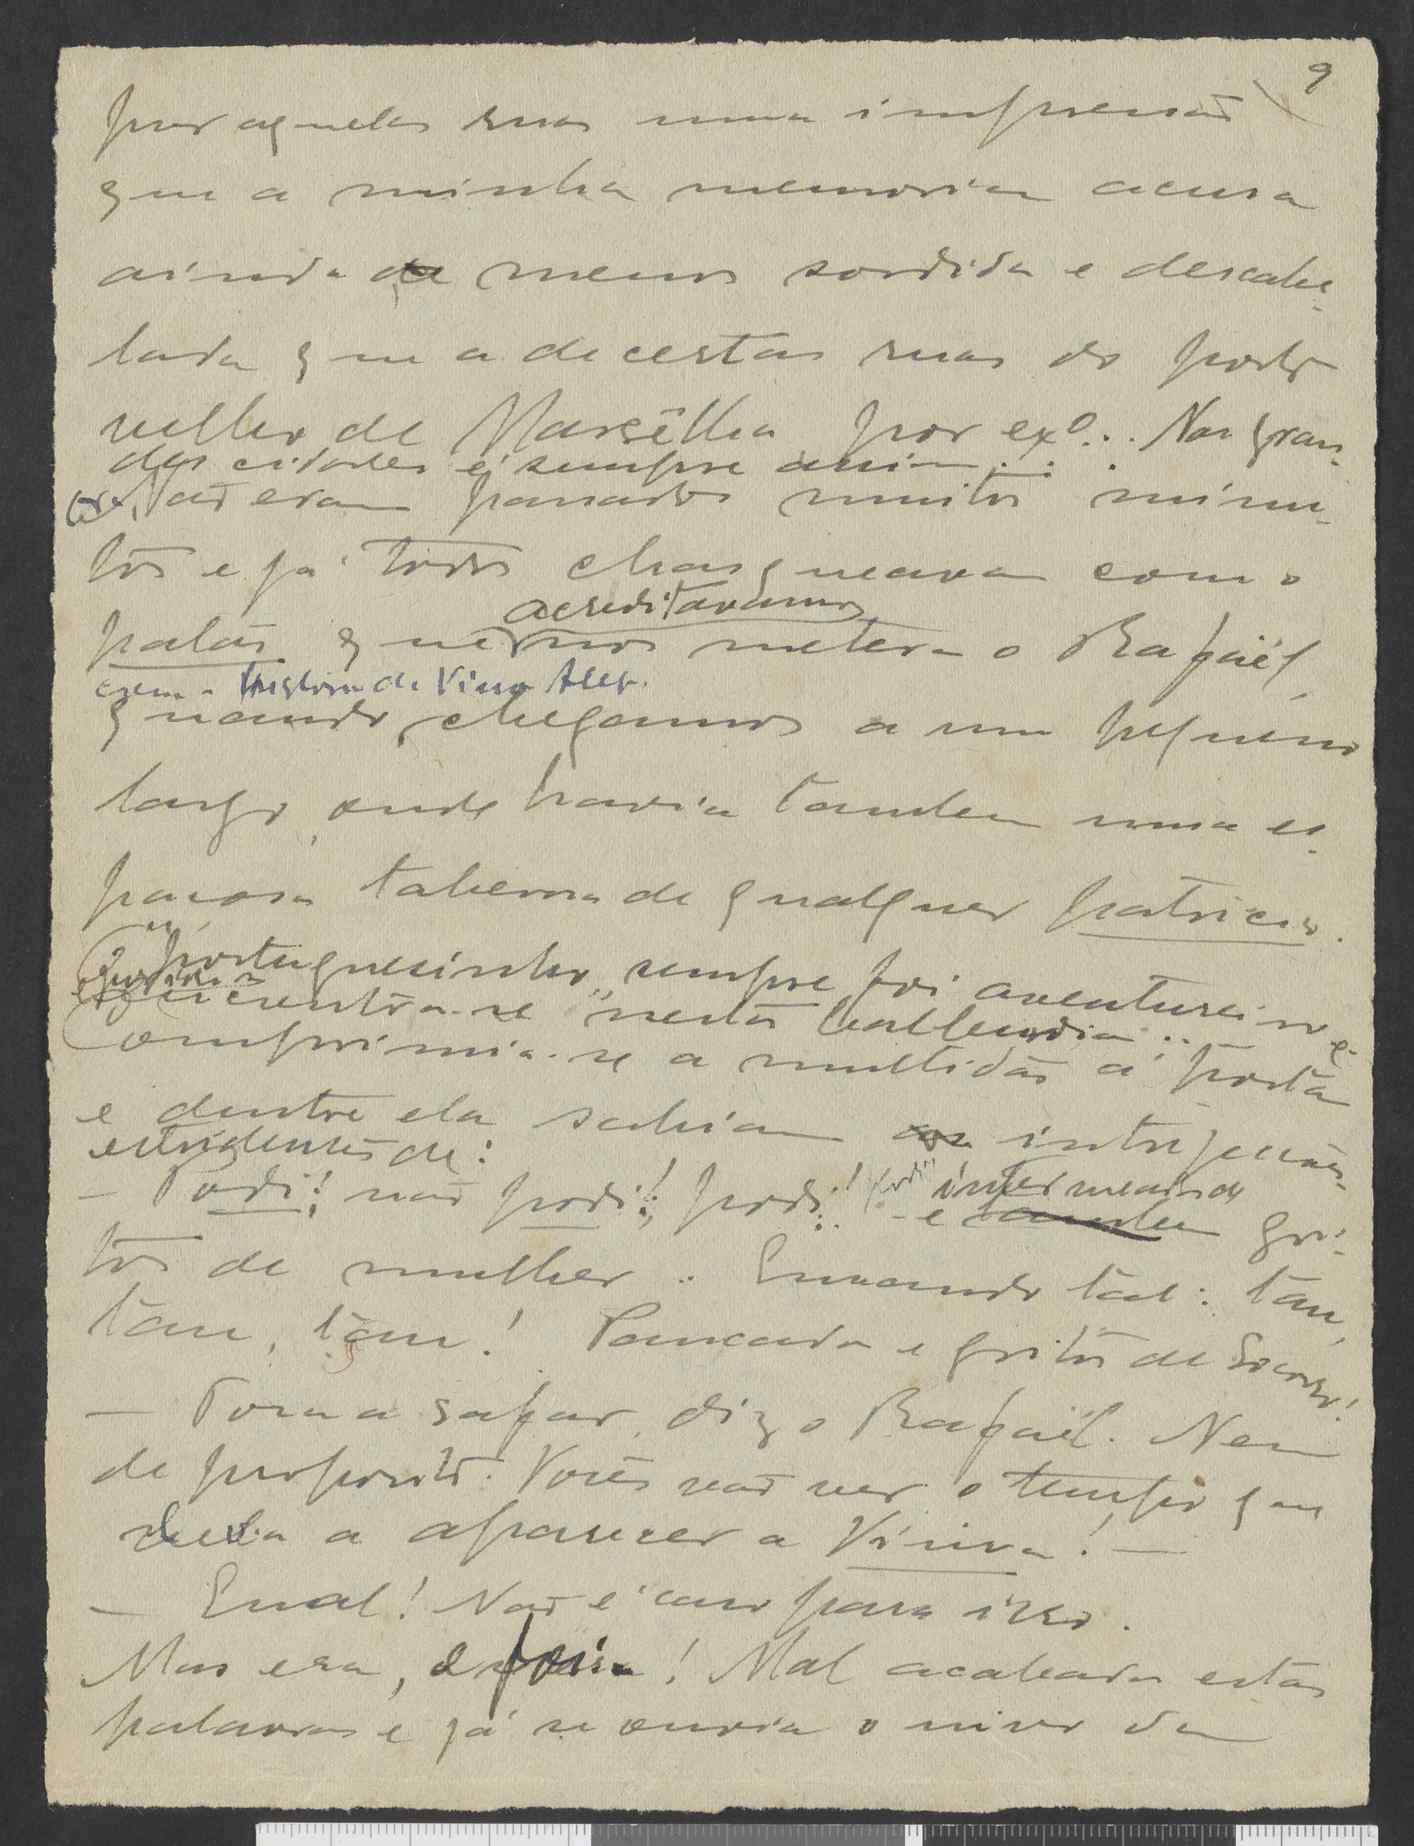 9
por aquelas ruas uma impressão
que a minha memoria acusa
ainda de menos sordida e descabe-
lada que a de certas ruas do porto
velho de Marsêlha por exº... Nas gran-
des cidades é sempre assim...
Não eram passados muitos minu-
tos e já todos chasqueavam com o
palão que nos metera o Rafaël,
acreditavamos
com a historia da Viuva Aleg.
quando chegamos a um pequeno
largo, onde havia tambem uma es-
paçosa taberna de qualquer patricio.
"portuguesinho, sempre foi aventureiro e
encontra-se" nestas
Comprimia-se a multidão á porta
e dentre ela sahiam as interjeições
estridentes de:
— Podi! não podi!, podi! podi! intermeados
e tambem gri-
tos de mulher. Enuando tal: tau,
tau, tau! Pancada e gritos de socorro!
— Toma a safar, diz o Rafaël. Nem
de proposito. Vocês vão ver o tempo que
leva a aparecer a Viuva! —
— Qual! Não é caso para isso.
Mas era, e foi! Mal acabadas estas
palavras e já se ouvia o uivo da